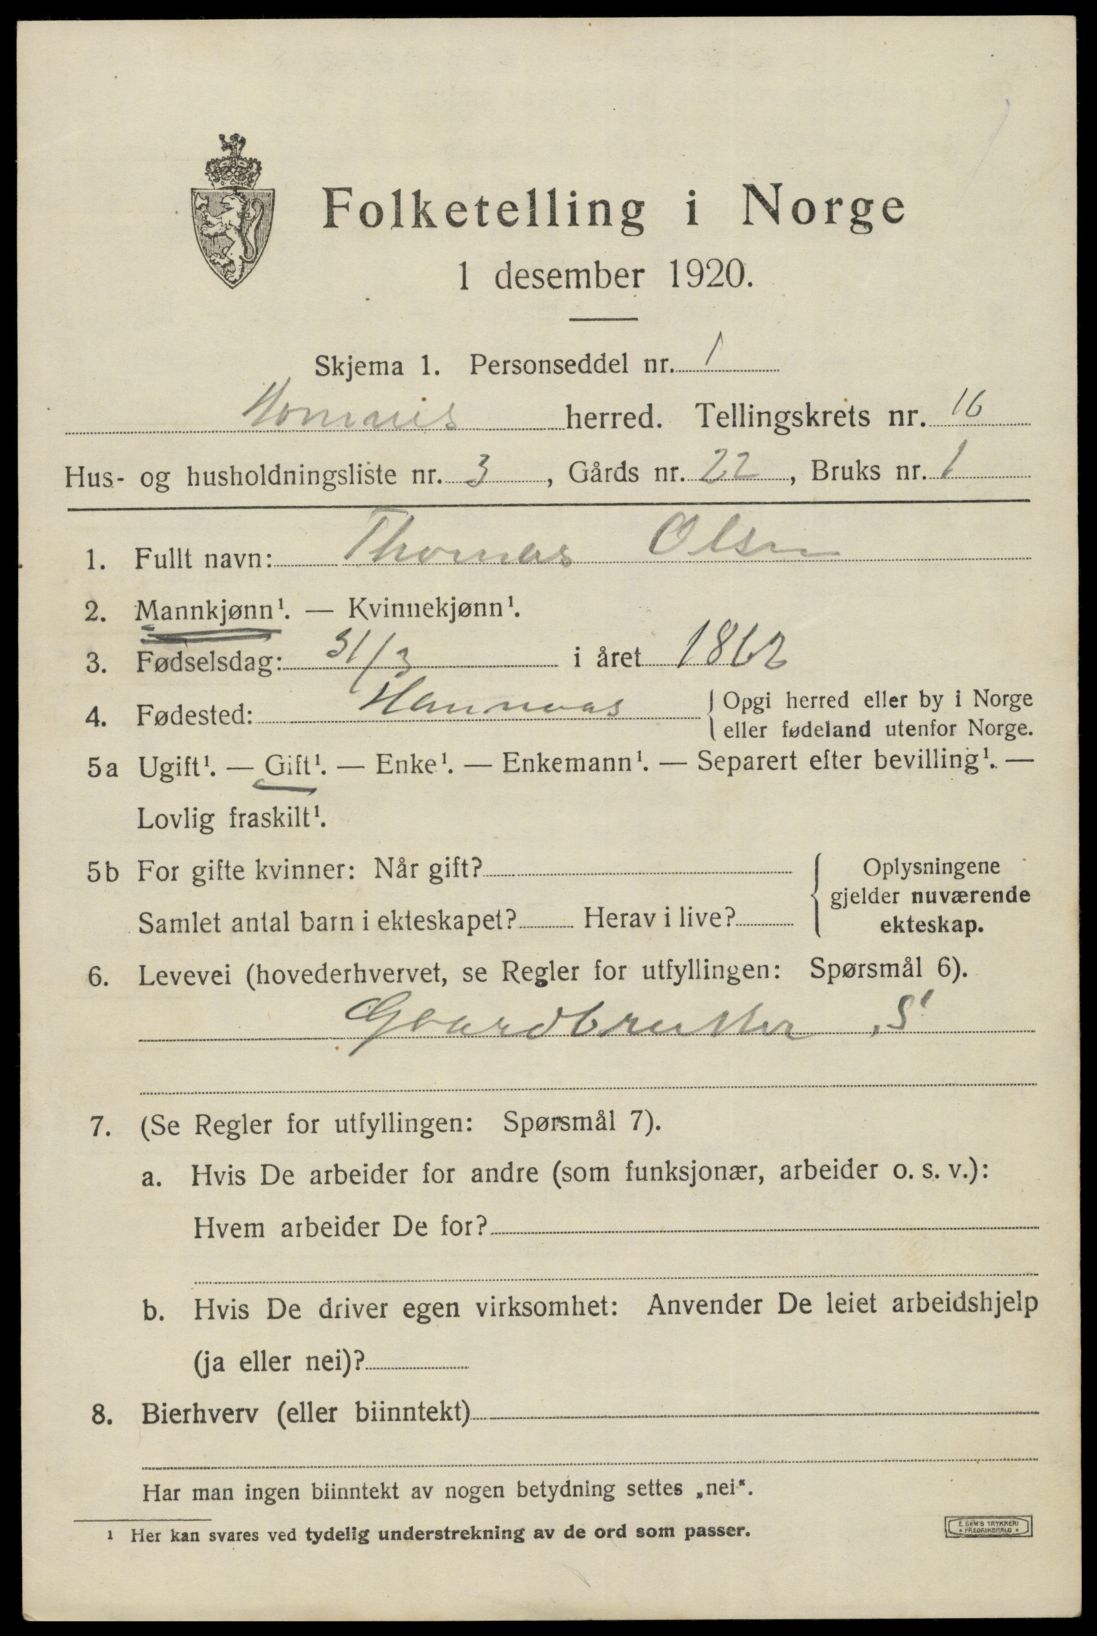 Folketelling i Norge
1 desember 1920.
Skjema 1. Personseddel nr. 1
Homnes herred. Tellingskrets nr. 16
Hus- og husholdningsliste nr. 3, Gårds nr. 22, Bruks nr. 1
1. Fullt navn: Thomas Olsen
2. Mannkjønn¹. — Kvinnekjønn¹.
3. Fødselsdag: 31/3 i året 1862
4. Fødested: Hannaas { Opgi herred eller by i Norge
eller fødeland utenfor Norge.
5a Ugift¹. — Gift¹. — Enke¹. — Enkemann¹. — Separert efter bevilling¹. —
Lovlig fraskilt¹.
5b For gifte kvinner: Når gift?
Samlet antal barn i ekteskapet? Herav i live?
{ Oplysningene
gjelder nuværende
ekteskap.
6. Levevei (hovederhvervet, se Regler for utfyllingen: Spørsmål 6).
Gaardbruker S
7. (Se Regler for utfyllingen: Spørsmål 7).
a. Hvis De arbeider for andre (som funksjonær, arbeider o. s. v.):
Hvem arbeider De for?
b. Hvis De driver egen virksomhet: Anvender De leiet arbeidshjelp
(ja eller nei)?
8. Bierhverv (eller biinntekt)
Har man ingen biinntekt av nogen betydning settes „nei“.
¹ Her kan svares ved tydelig understrekning av de ord som passer.
E. SEM'S TRYKKERI
FREDRIKSHALD